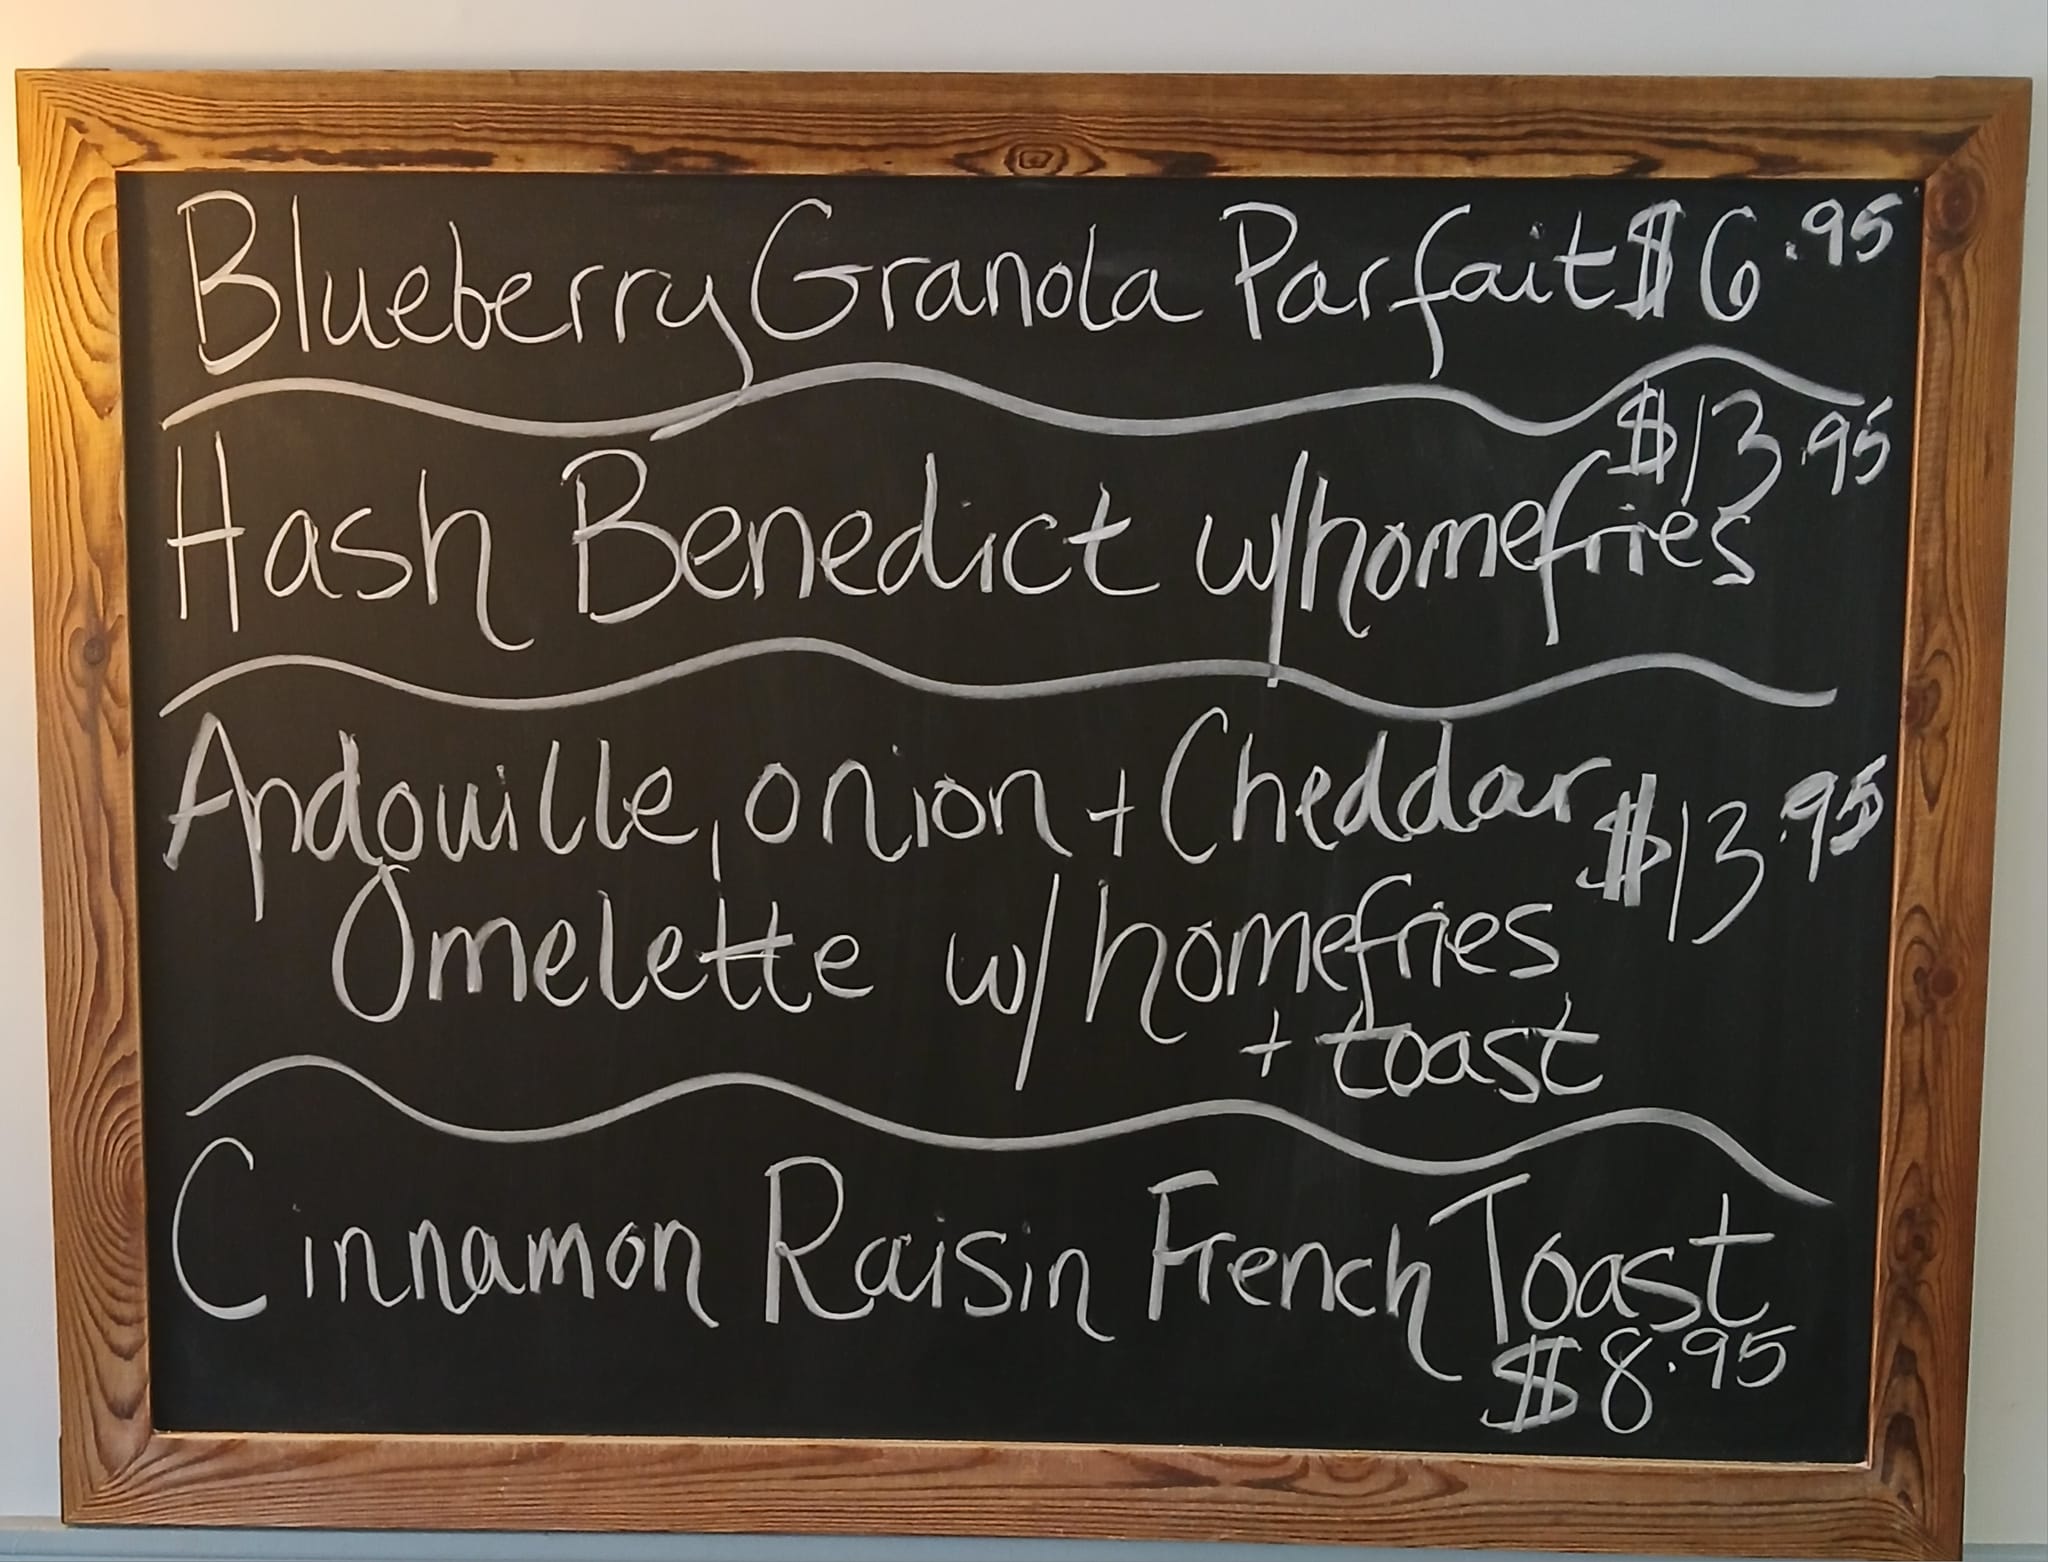 Blueberry Granola Parfait $6.95
$13.95
Hash Benedict w/homefries
Andouille, onion + Cheddar $13.95
Omelette w/homefries
+ toast
Cinnamon Raisin French Toast
$8.95